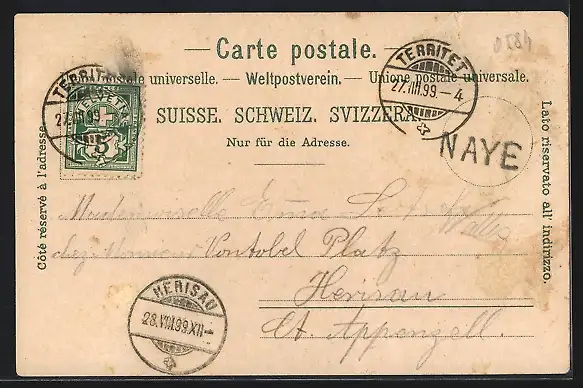 0584
— Carte postale. —
postale universelle. — Weltpostverein. — Unione postale universale.
SUISSE. SCHWEIZ. SVIZZERA.
Nur für die Adresse.
Côté réservé à l'adresse.
Lato riservato all' indirizzo.
TERRITET
27.VIII.99.–4
TERRITET
27.VIII.99
HELVETIA
5
NAYE
Mademoiselle Emma
chez Monsieur Vontobel Platz
Herisau
Ct. Appenzell.
HERISAU
28.VIII.99.XII–